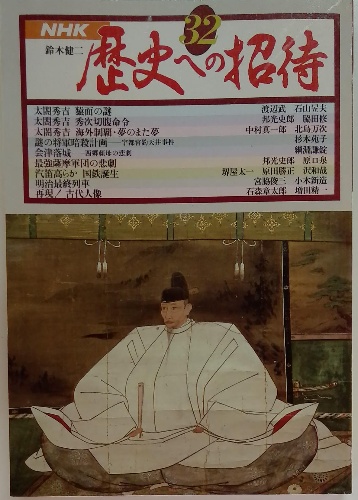 NHK
鈴木健二
32
歴史への招待
太閤秀吉 猿面の謎 渡辺武 石山晃夫
太閤秀吉 秀次切腹命令 邦光史郎 脇田修
太閤秀吉 海外制覇・夢のまた夢 中村真一郎 北島万次
謎の将軍暗殺計画──宇都宮釣天井事件 杉本苑子
会津落城──西郷頼母の悲劇 綱淵謙錠
最強薩摩軍団の悲劇 邦光史郎 原口泉
汽笛高らか 国鉄誕生 堺屋太一 原田勝正 沢和哉
明治最終列車 宮脇俊三 小木新造
再現/古代人像 石森章太郎 増田精一